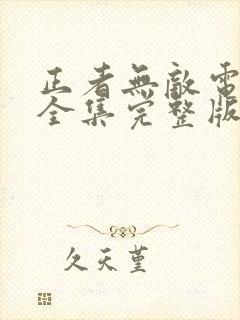 正者無敵電
全集完整版
久天堇